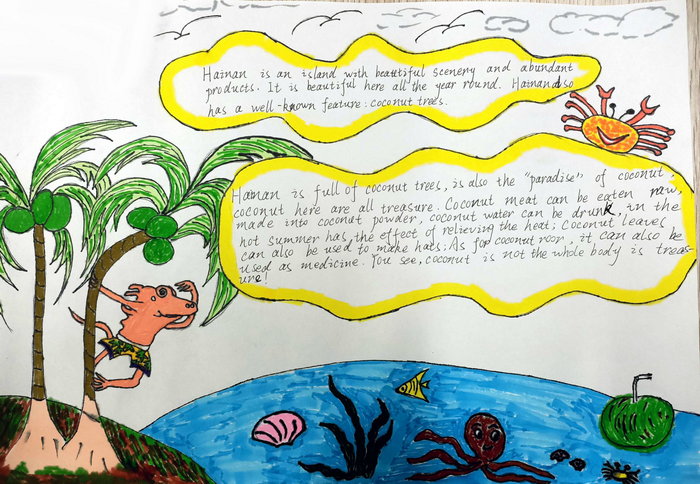 Hainan is an island with beautiful scenery and abundant
products. It is beautiful here all the year round. Hainan also
has a well-known feature: coconut trees.
Hainan is full of coconut trees, is also the "paradise" of coconut,
coconut here are all treasure. Coconut meat can be eaten raw,
made into coconut powder, coconut water can be drunk, in the
hot summer has the effect of relieving the heat; Coconut leaves
can also be used to make hats; As for coconut roor, it can also be
used as medicine. You see, coconut is not the whole body is treas-
ure!